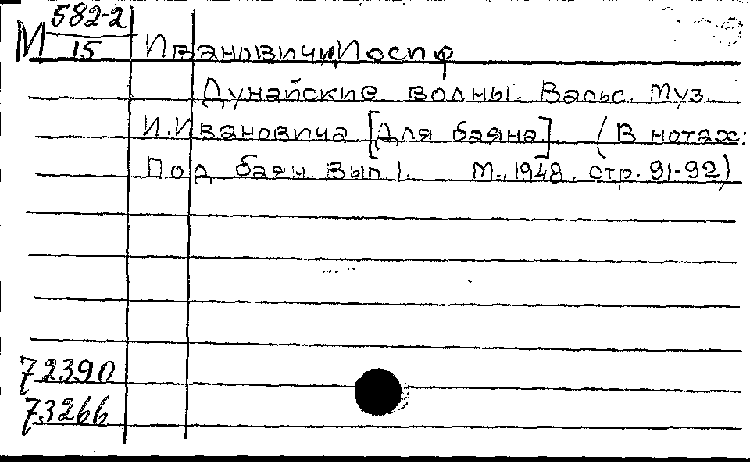 М 582-2
15
Иванович, Иосиф
Дунайские волны. Вальс. Муз.
И. Ивановича [Для баяна]. (В нотах:
Под баян. Вып 1. М., 1948. стр. 91-92)
72390
73266